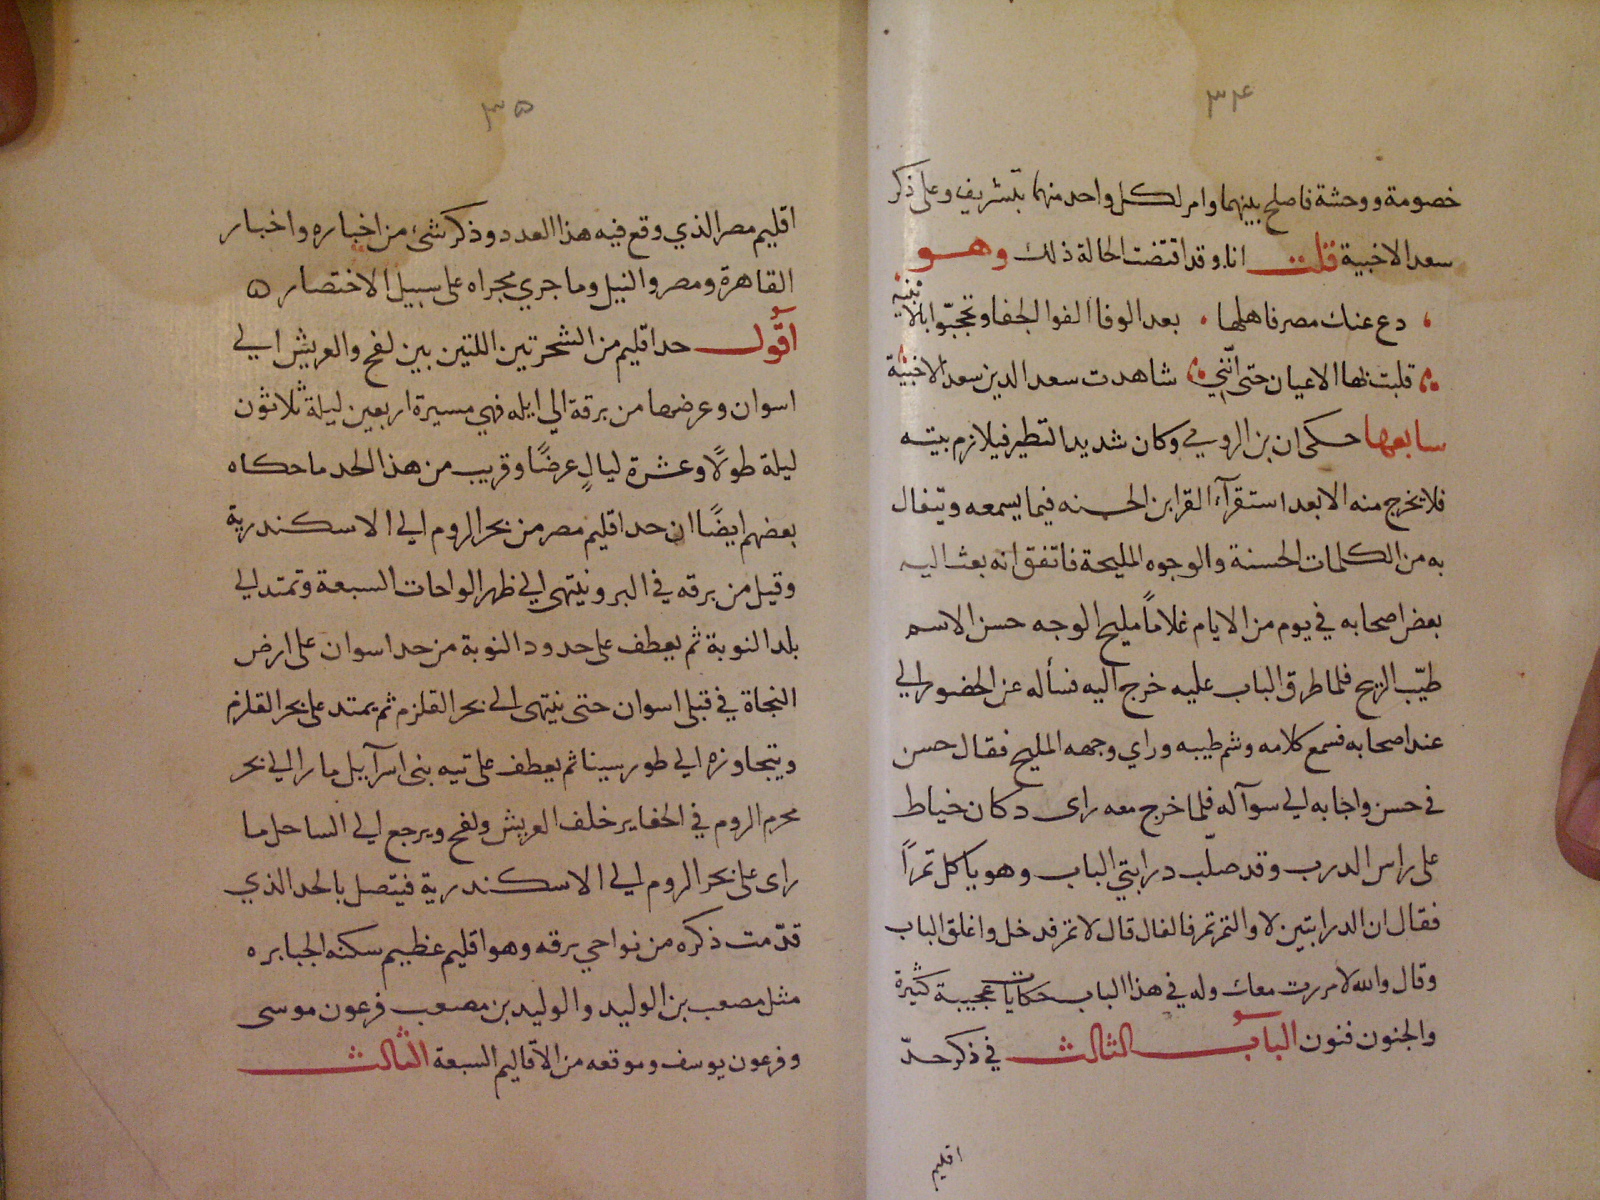 ٣٤
خصومة ووحشة فاصلح بينهما وامر لكل واحد منهما بتشريف وعلى ذكر
سعد الاخبية قلت انا وقد اقتضت الحالة ذلك وهو
دع عنك مصر فاهلها بعد الوفا الفوا الجفا وتحجبوا بالابنية
قلبت بها الاعيان حتى انني شاهدت سعد الدين سعد الاخبية
سابعها حكى ان بن الرومي وكان شديد التطير فيلازم بيته
فلا يخرج منه الا بعد استقرآء القراين الحسنه فيما يسمعه ويتفال
به من الكلمات الحسنة والوجوه المليحة فاتفق انه بعث اليه
بعض اصحابه في يوم من الايام غلاماً مليح الوجه حسن الاسم
طيّب الريح فلما طرق الباب عليه خرج اليه فسأله عن الحضور الي
عند اصحابه فسمع كلامه وشم طيبه وراي وجهه المليح فقال حسن
في حسن واجابه الي سوآله فلما خرج معه راى دكان خياط
على راس الدرب وقد صلّب درابتي الباب وهو ياكل تمراً
فقال ان الدرابتين لا والتمر تمر فالفال قال لا تمر فدخل واغلق الباب
وقال والله لا مررت معك وله في هذا الباب حكايات عجيبة كثيرة
والجنون فنون الباب الثالث في ذكر حدّ
اقليم
٣٥
اقليم مصر الذي وقع فيه هذا العدد وذكر شئ من اخباره واخبار
القاهرة ومصر والنيل وما جري مجراه على سبيل الاختصار ه
اقول حد اقليم من الشجرتين اللتين بين لفح والعريش الي
اسوان وعرضها من برقة الي ايله فهي مسيرة اربعين ليلة ثلاثون
ليلة طولًا وعشرة ليالٍ عرضًا وقريب من هذا الحد ما حكاه
بعضهم ايضًا ان حد اقليم مصر من بحر الروم الي الاسكندرية
وقيل من برقه في البر وينتهى الي ظهر الواحات السبعة وتمتد الي
بلد النوبة ثم يعطف على حدود النوبة من حد اسوان على ارض
النجاة في قبلى اسوان حتى ينتهى الى بحر القلزم ثم يمتد على بحر القلزم
ويتجاوزه الي طور سينا ثم يعطف على تيه بنى اسرآيل مارا الي بحر
محرم الروم في الحفاير خلف العريش ولفح ويرجع الي الساحل ما
راى على بحر الروم الي الاسكندرية فيتصل بالحد الذي
قدّمت ذكره من نواحي برقه وهو اقليم عظيم سكنه الجبابره
مثل مصعب بن الوليد والوليد بن مصعب فرعون موسى
وفرعون يوسف وموقعه من الاقاليم السبعة الثالث